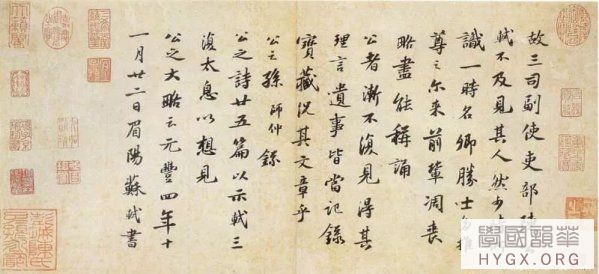 故三司副使吏部陳
軾不及見其人然少
識一時名卿勝士多推
尊之尔來前輩凋喪
略盡能稱誦
公者漸不復見得其
理言遺事皆當記錄
寶藏況其文章乎
公之孫師仲錄
公之詩廿五篇以示軾三
復太息以想見
公之大略云元豐四年十
一月廿二日眉陽蘇軾書
學國韻華
HYGX.ORG